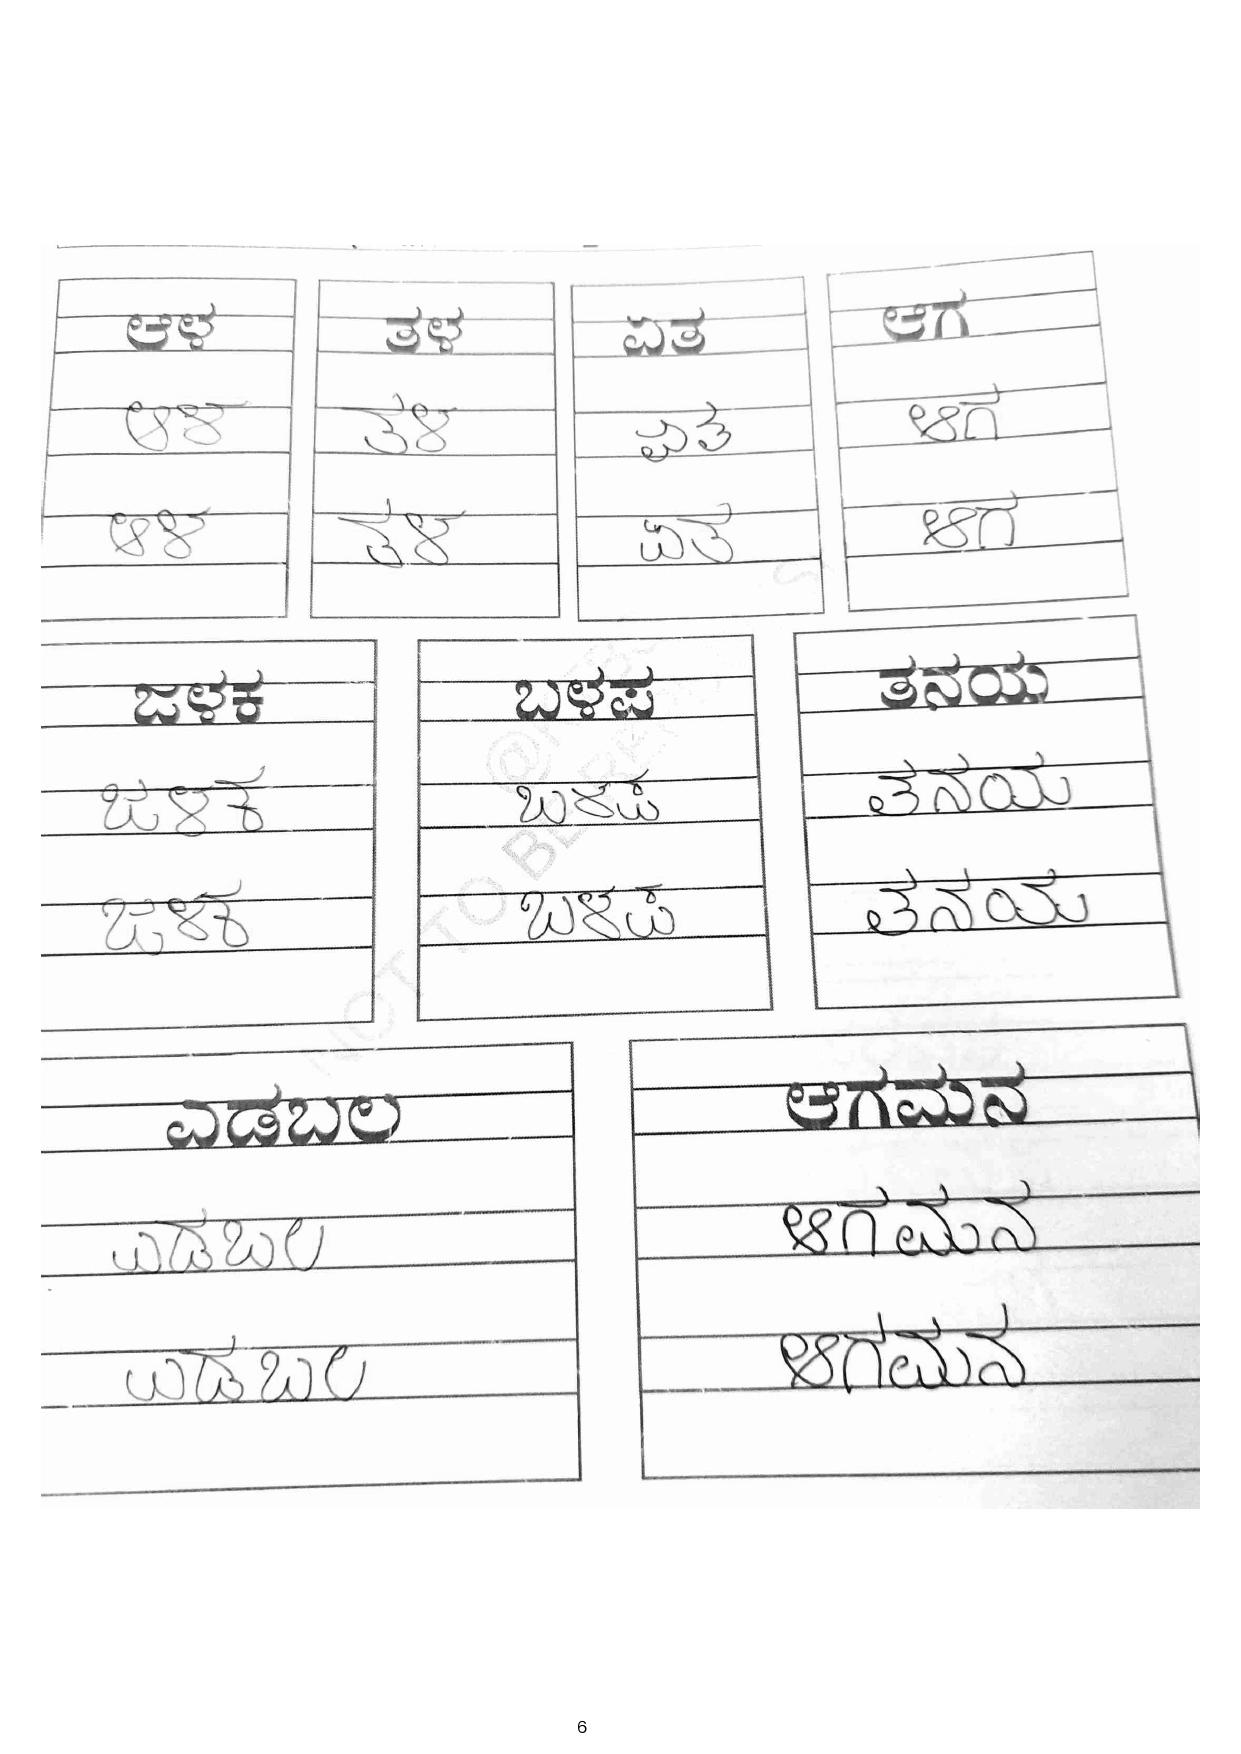 ಆಳ ತಳ ಏತ ಆಗ
ಆಳ ತಳ ಏತ ಆಗ
ಆಳ ತಳ ಏತ ಆಗ
ಜಳಕ ಬಳಪ ತನಯ
ಜಳಕ ಬಳಪ ತನಯ
ಜಳಕ ಬಳಪ ತನಯ
ಎಡಬಲ ಆಗಮನ
ಎಡಬಲ ಆಗಮನ
ಎಡಬಲ ಆಗಮನ
NOT TO BE
6